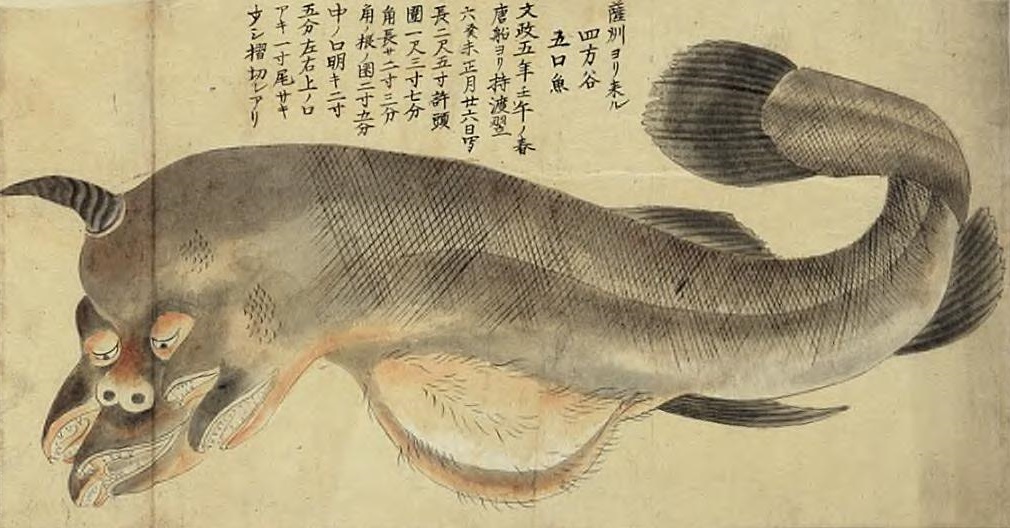 薩州ヨリ来ル
四方谷
五口魚
文政五年壬午ノ春
唐船ヨリ持渡翌
六癸未正月廿六日写
長二尺五寸許頭
圍一尺三寸七分
角長サ二寸三分
角ノ根ノ圍二寸五分
中ノ口明キ二寸
五分左右上ノ口
アキ一寸尾サキ
少シ摺切レアリ